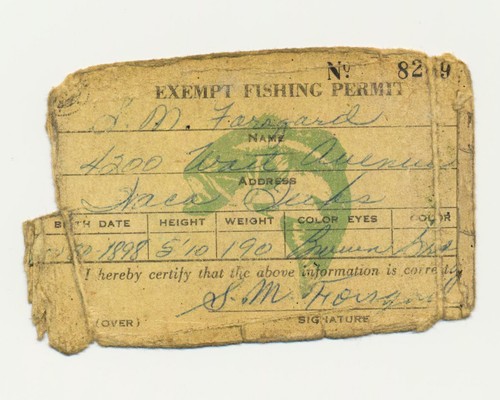 No 82 9
EXEMPT FISHING PERMIT
S. M. Forsgard
NAME
4200 Avenue
ADDRESS
Waco Texas
BIRTH DATE HEIGHT WEIGHT COLOR EYES COLOR
1898 5'10 190 Brown
I hereby certify that the above information is correct
S. M. Forsgard
(OVER) SIGNATURE